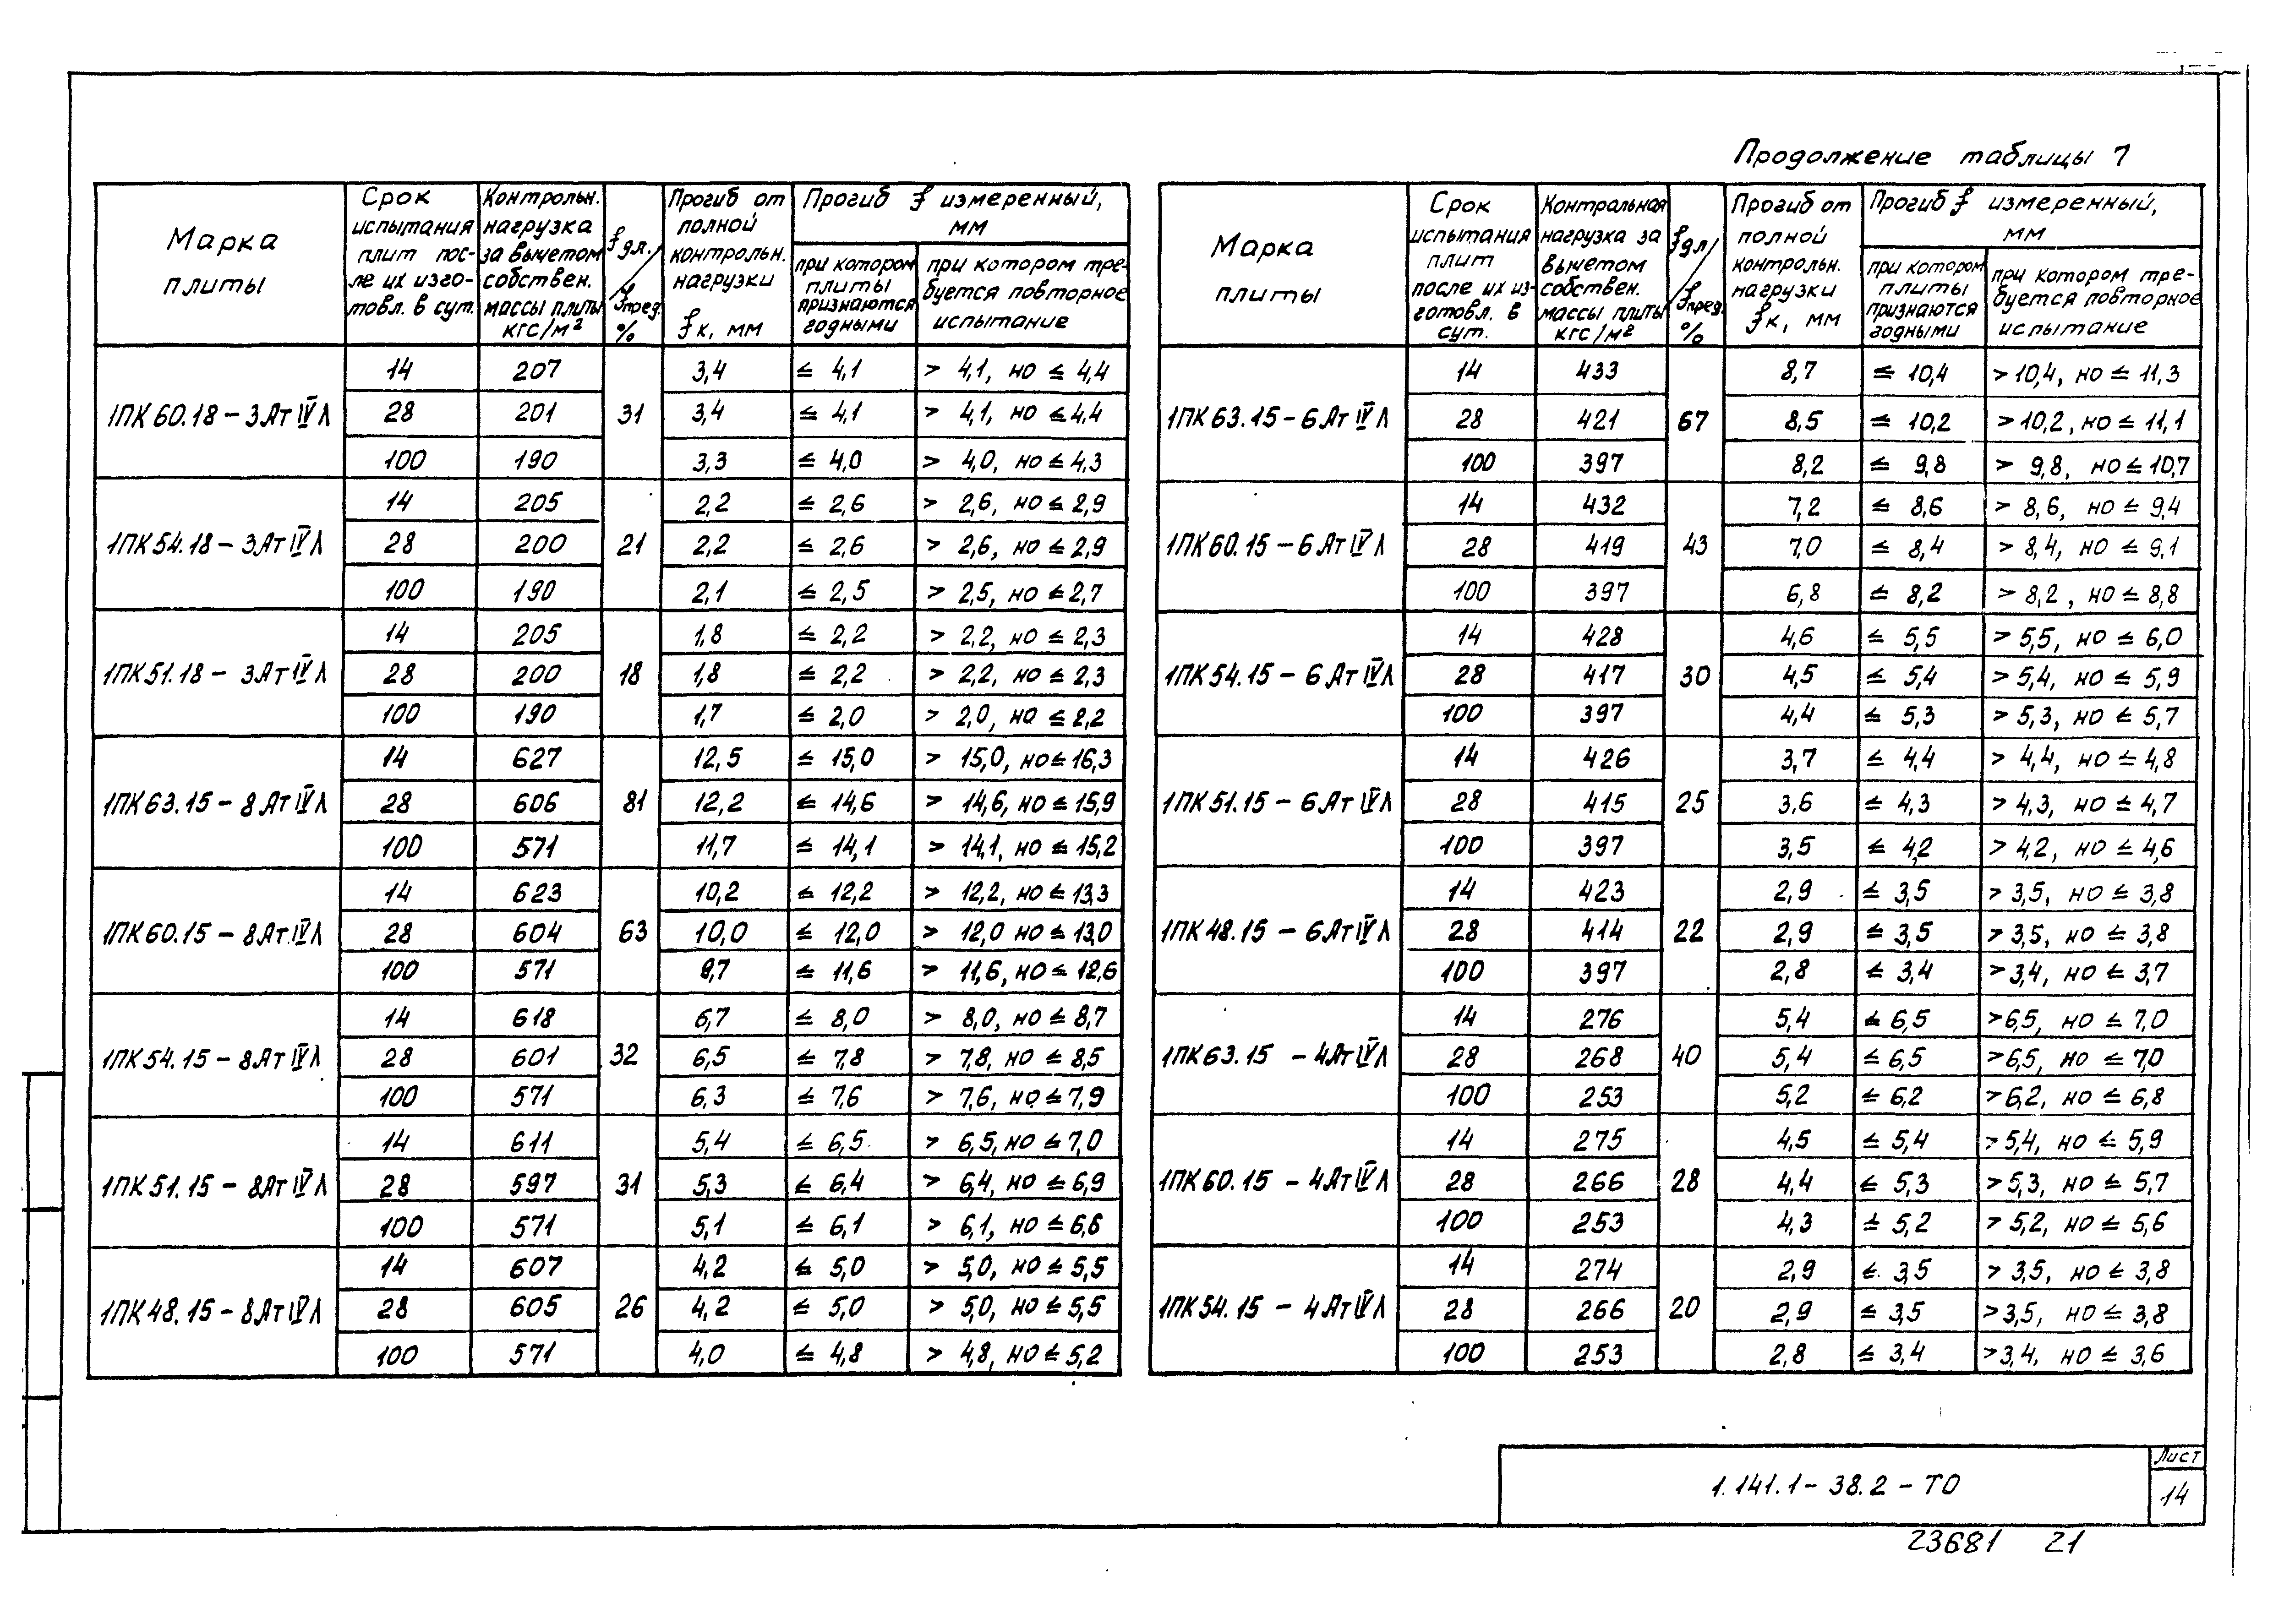 Продолжение таблицы 7
Марка плиты | Срок испытания плит пос- ле их изго- товл. в сут. | Контрольн. нагрузка за вычетом собствен. массы плиты кгс/м² | fдл./fпред. % | Прогиб от полной контрольн. нагрузки fк, мм | Прогиб f измеренный, мм | при котором плиты признаются годными | при котором тре- буется повторное испытание
1ПК60.18-3АтIVЛ | 14 | 207 | 31 | 3,4 | ≤ 4,1 | > 4,1, но ≤ 4,4
28 | 201 | 3,4 | ≤ 4,1 | > 4,1, но ≤ 4,4
100 | 190 | 3,3 | ≤ 4,0 | > 4,0, но ≤ 4,3
1ПК54.18-3АтIVЛ | 14 | 205 | 21 | 2,2 | ≤ 2,6 | > 2,6, но ≤ 2,9
28 | 200 | 2,2 | ≤ 2,6 | > 2,6, но ≤ 2,9
100 | 190 | 2,1 | ≤ 2,5 | > 2,5, но ≤ 2,7
1ПК51.18-3АтIVЛ | 14 | 205 | 18 | 1,8 | ≤ 2,2 | > 2,2, но ≤ 2,3
28 | 200 | 1,8 | ≤ 2,2 | > 2,2, но ≤ 2,3
100 | 190 | 1,7 | ≤ 2,0 | > 2,0, но ≤ 2,2
1ПК63.15-8АтIVЛ | 14 | 627 | 81 | 12,5 | ≤ 15,0 | > 15,0, но ≤ 16,3
28 | 606 | 12,2 | ≤ 14,6 | > 14,6, но ≤ 15,9
100 | 571 | 11,7 | ≤ 14,1 | > 14,1, но ≤ 15,2
1ПК60.15-8АтIVЛ | 14 | 623 | 63 | 10,2 | ≤ 12,2 | > 12,2, но ≤ 13,3
28 | 604 | 10,0 | ≤ 12,0 | > 12,0 но ≤ 13,0
100 | 571 | 9,7 | ≤ 11,6 | > 11,6, но ≤ 12,6
1ПК54.15-8АтIVЛ | 14 | 618 | 32 | 6,7 | ≤ 8,0 | > 8,0, но ≤ 8,7
28 | 601 | 6,5 | ≤ 7,8 | > 7,8, но ≤ 8,5
100 | 571 | 6,3 | ≤ 7,6 | > 7,6, но ≤ 7,9
1ПК51.15-8АтIVЛ | 14 | 611 | 31 | 5,4 | ≤ 6,5 | > 6,5, но ≤ 7,0
28 | 597 | 5,3 | ≤ 6,4 | > 6,4, но ≤ 6,9
100 | 571 | 5,1 | ≤ 6,1 | > 6,1, но ≤ 6,6
1ПК48.15-8АтIVЛ | 14 | 607 | 26 | 4,2 | ≤ 5,0 | > 5,0, но ≤ 5,5
28 | 605 | 4,2 | ≤ 5,0 | > 5,0, но ≤ 5,5
100 | 571 | 4,0 | ≤ 4,8 | > 4,8, но ≤ 5,2
Марка плиты | Срок испытания плит после их из- готовл. в сут. | Контральная нагрузка за вычетом собствен. массы плиты кгс/м² | fдл/fпред. % | Прогиб от полной контрольн. нагрузки fк, мм | Прогиб f измеренный, мм | при котором плиты признаются годными | при котором тре- буется повторное испытание
1ПК63.15-6АтIVЛ | 14 | 433 | 67 | 8,7 | ≤ 10,4 | > 10,4, но ≤ 11,3
28 | 421 | 8,5 | ≤ 10,2 | > 10,2, но ≤ 11,1
100 | 397 | 8,2 | ≤ 9,8 | > 9,8, но ≤ 10,7
1ПК60.15-6АтIVЛ | 14 | 432 | 43 | 7,2 | ≤ 8,6 | > 8,6, но ≤ 9,4
28 | 419 | 7,0 | ≤ 8,4 | > 8,4, но ≤ 9,1
100 | 397 | 6,8 | ≤ 8,2 | > 8,2, но ≤ 8,8
1ПК54.15-6АтIVЛ | 14 | 428 | 30 | 4,6 | ≤ 5,5 | > 5,5, но ≤ 6,0
28 | 417 | 4,5 | ≤ 5,4 | > 5,4, но ≤ 5,9
100 | 397 | 4,4 | ≤ 5,3 | > 5,3, но ≤ 5,7
1ПК51.15-6АтIVЛ | 14 | 426 | 25 | 3,7 | ≤ 4,4 | > 4,4, но ≤ 4,8
28 | 415 | 3,6 | ≤ 4,3 | > 4,3, но ≤ 4,7
100 | 397 | 3,5 | ≤ 4,2 | > 4,2, но ≤ 4,6
1ПК48.15-6АтIVЛ | 14 | 423 | 22 | 2,9 | ≤ 3,5 | > 3,5, но ≤ 3,8
28 | 414 | 2,9 | ≤ 3,5 | > 3,5, но ≤ 3,8
100 | 397 | 2,8 | ≤ 3,4 | > 3,4, но ≤ 3,7
1ПК63.15-4АтIVЛ | 14 | 276 | 40 | 5,4 | ≤ 6,5 | > 6,5, но ≤ 7,0
28 | 268 | 5,4 | ≤ 6,5 | > 6,5, но ≤ 7,0
100 | 253 | 5,2 | ≤ 6,2 | > 6,2, но ≤ 6,8
1ПК60.15-4АтIVЛ | 14 | 275 | 28 | 4,5 | ≤ 5,4 | > 5,4, но ≤ 5,9
28 | 266 | 4,4 | ≤ 5,3 | > 5,3, но ≤ 5,7
100 | 253 | 4,3 | ≤ 5,2 | > 5,2, но ≤ 5,6
1ПК54.15-4АтIVЛ | 14 | 274 | 20 | 2,9 | ≤ 3,5 | > 3,5, но ≤ 3,8
28 | 266 | 2,9 | ≤ 3,5 | > 3,5, но ≤ 3,8
100 | 253 | 2,8 | ≤ 3,4 | > 3,4, но ≤ 3,6
1.141.1-38.2-ТО
Лист
14
23681 21